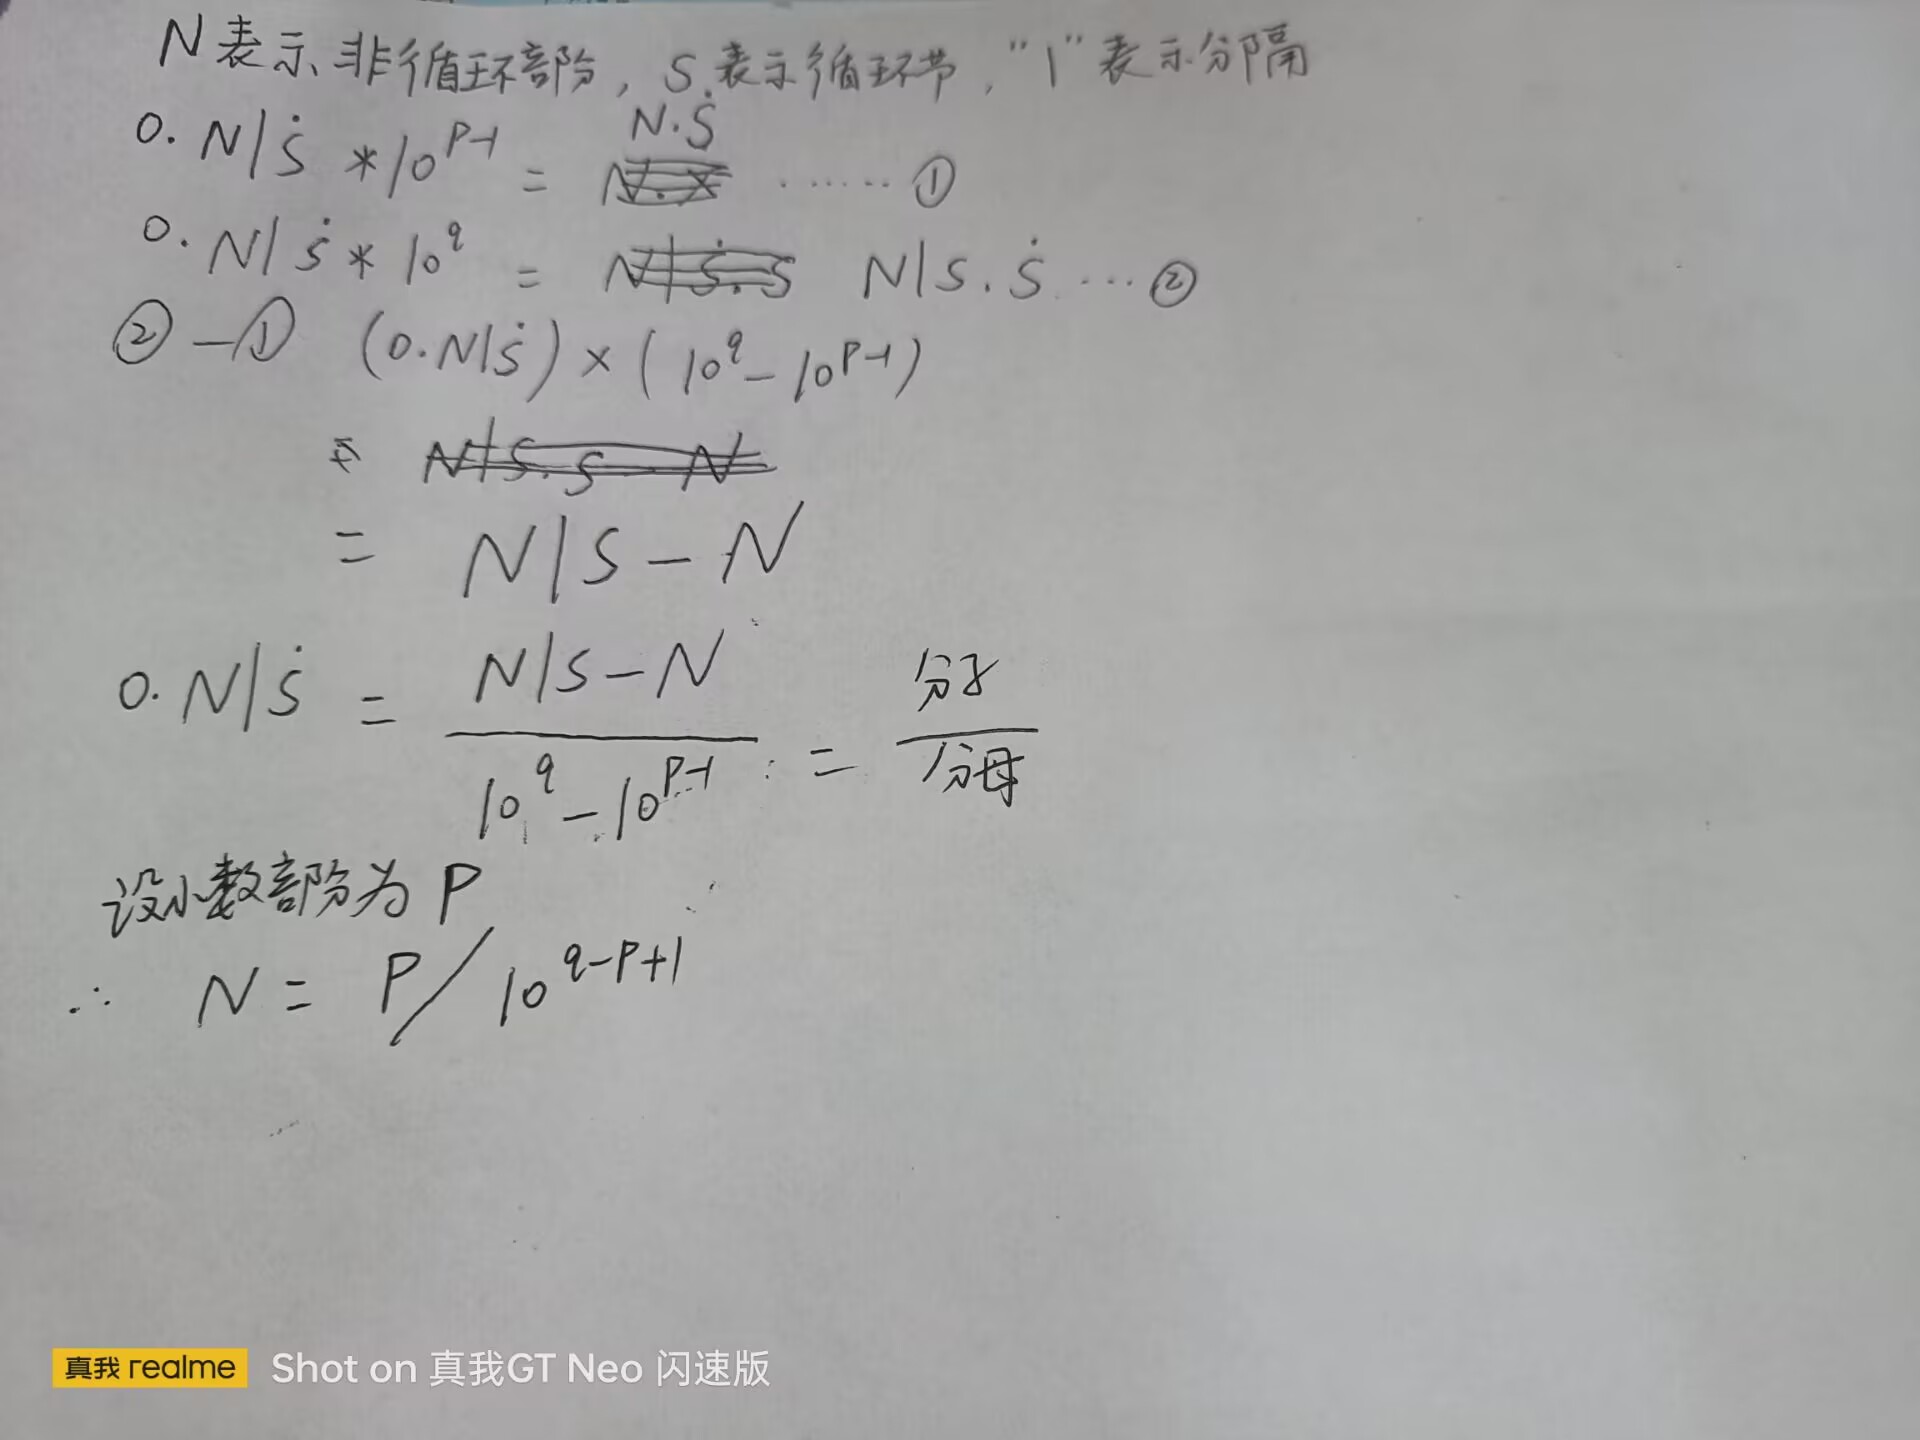 N表示非循环部分，S表示循环节，"|"表示分隔
0.N|Ṡ *10^{P-1} = N.Ṡ ……①
0.N|Ṡ *10^q = N|S.Ṡ …②
②-① (0.N|Ṡ)×(10^q-10^{P-1})
= N|S-N
0.N|Ṡ = \frac{N|S-N}{10^q-10^{P-1}} = \frac{分子}{分母}
设小数部分为P
∴ N = P/10^{q-P+1}
真我 realme Shot on 真我GT Neo 闪速版